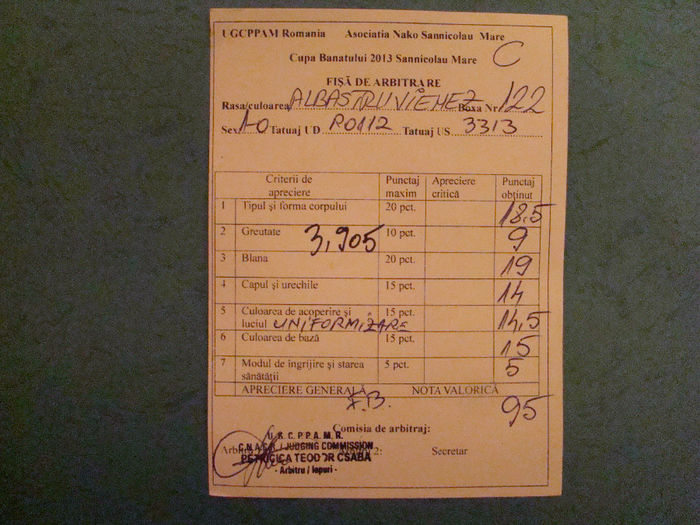 UGCPPAM Romania Asociatia Nako Sannicolau Mare
Cupa Banatului 2013 Sannicolau Mare C
FIȘĂ DE ARBITRARE
Rasa/culoarea ALBASTRU VIENEZ Boxa Nr. 122
Sex 1-0 Tatuaj UD RO112 Tatuaj US 3313
Criterii de apreciere Punctaj maxim Apreciere critică Punctaj obținut
1 Tipul și forma corpului 20 pct. 18,5
2 Greutate 3,905 10 pct. 9
3 Blana 20 pct. 19
4 Capul și urechile 15 pct. 14
5 Culoarea de acoperire și luciul UNIFORMIZARE 15 pct. 14,5
6 Culoarea de bază 15 pct. 15
7 Modul de îngrijire și starea sănătății 5 pct. 5
APRECIERE GENERALĂ F.B. NOTA VALORICĂ 95
Comisia de arbitraj:
U.G.C.P.P.A.M.R.
JUDGING COMMISSION
PETRICICA TEODOR CSABA
2: Secretar
- Arbitru / Iepuri -